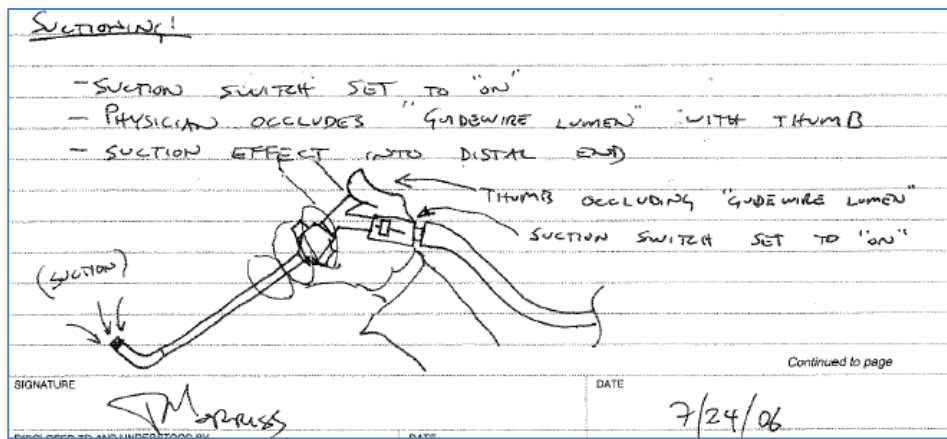 SUCTIONING!
- SUCTION SWITCH SET TO "ON"
- PHYSICIAN OCCLUDES "GUIDEWIRE LUMEN" WITH THUMB
- SUCTION EFFECT INTO DISTAL END
THUMB OCCLUDING "GUIDEWIRE LUMEN"
SUCTION SWITCH SET TO "ON"
(SUCTION)
Continued to page
SIGNATURE
DATE
7/24/06
DISCLOSED TO AND UNDERSTOOD BY
DATE